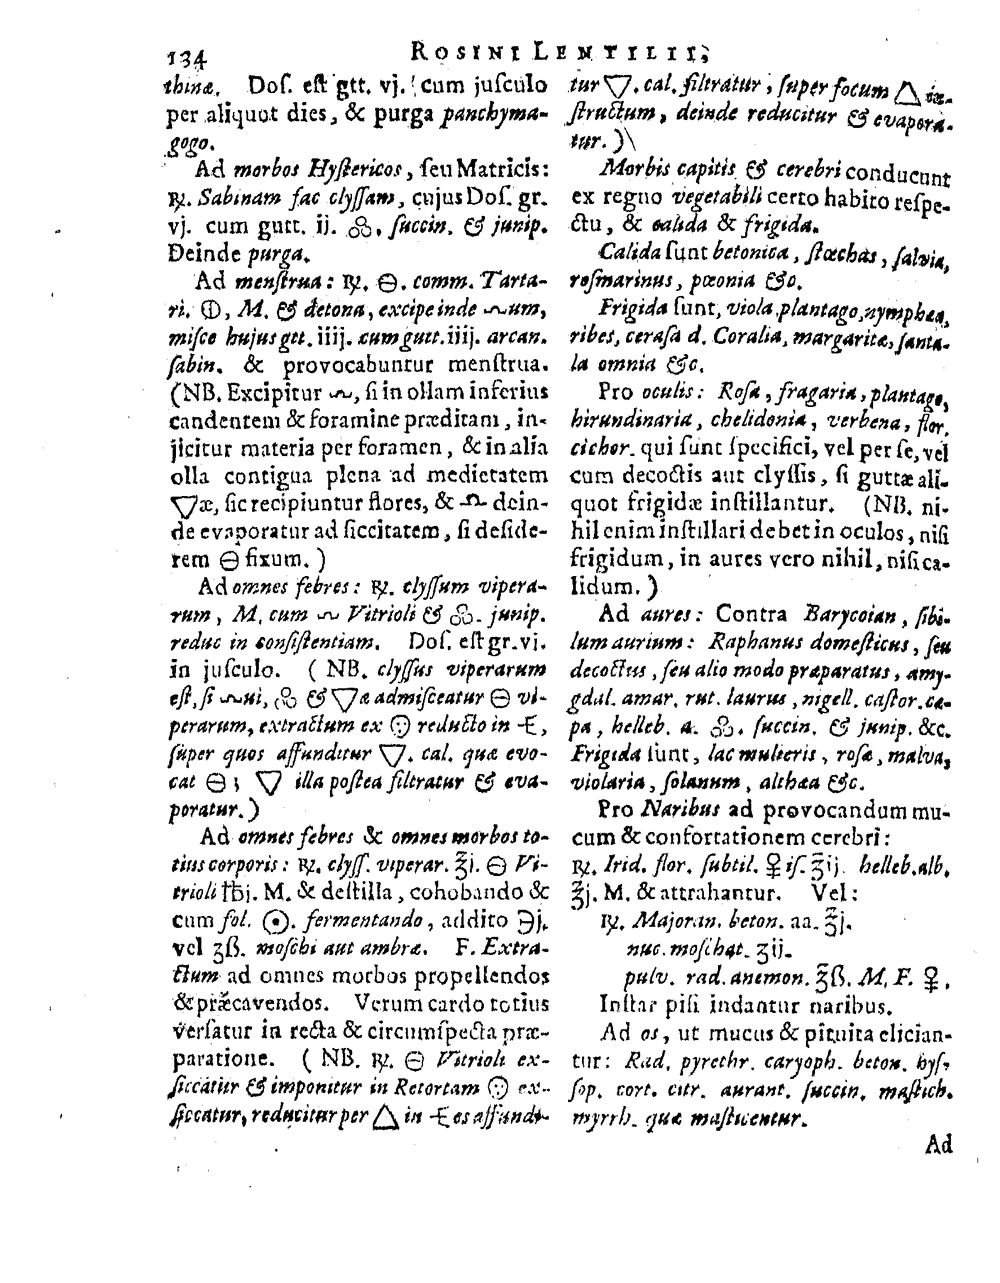 134 ROSINI LENTILII;
thinæ. Doſ. eſt gtt. vj. cum juſculo
per aliquot dies, & purga panchyma-
gogo.
Ad morbos Hyſtericos, ſeu Matricis:
℞. Sabinam fac clyſſam, cujus Doſ. gr.
vj. cum gutt. ij. ஃ. ſuccin. & junip.
Deinde purga.
Ad menſtrua: ℞. 🜔. comm. Tarta-
ri. 🜕, M. & detona, excipe inde 🜓um,
miſce hujus gtt. iiij. cum gutt. iiij. arcan.
ſabin. & provocabuntur menſtrua.
(NB. Excipitur 🜓, ſi in ollam inferius
candentem & foramine præditam, in-
jicitur materia per foramen, & in alia
olla contigua plena ad medietatem
🜄æ, ſic recipiuntur flores, & dein-
de evaporatur ad ſiccitatem, ſi deſide-
rem 🜔 fixum. )
Ad omnes febres: ℞. clyſſum vipera-
rum, M. cum Vitrioli & junip.
reduc in conſiſtentiam. Doſ. eſt gr. vj.
in juſculo. ( NB. clyſſus viperarum
eſt, ſi ui, & 🜄æ admiſceatur 🜔 vi-
perarum, extractum ex reducto in ,
ſuper quos affunditur 🜄. cal. quæ evo-
cat 🜔; 🜄 illa poſtea filtratur & eva-
poratur. )
Ad omnes febres & omnes morbos to-
tius corporis: ℞. clyſſ. viperar. ℥j. 🜔 Vi-
trioli ℔j. M. & deſtilla, cohobando &
cum ſol. ☉. fermentando, addito ℈j.
vel ʒß. moſchi aut ambræ. F. Extra-
ctum ad omnes morbos propellendos
& præcavendos. Verum cardo totius
verſatur in recta & circumſpecta præ-
paratione. ( NB. ℞. 🜔 Vitrioli ex-
ſiccatur & imponitur in Retortam ex-
ſiccatur, reducitur per 🜂 in es affundi-
tur 🜄. cal. filtratur, ſuper focum 🜂 in-
ſtructum, deinde reducitur & evapora-
tur. )
Morbis capitis & cerebri conducunt
ex regno vegetabili certo habito reſpe-
ctu, & calida & frigida.
Calida ſunt betonica, ſtœchas, ſalvia,
roſmarinus, pæonia &c.
Frigida ſunt, viola, plantago, nymphæa,
ribes, ceraſa d. Coralia, margaritæ, ſanta-
la omnia &c.
Pro oculis: Roſa, fragaria, plantago,
hirundinaria, chelidonia, verbena, flor.
cichor. qui ſunt ſpecifici, vel per ſe, vel
cum decoctis aut clyſſis, ſi guttæ ali-
quot frigidæ inſtillantur. (NB. ni-
hil enim inſtillari debet in oculos, niſi
frigidum, in aures vero nihil, niſi ca-
lidum. )
Ad aures: Contra Barycoian, ſibi-
lum aurium: Raphanus domeſticus, ſeu
decoctus, ſeu alio modo præparatus, amy-
gdal. amar. rut. laurus, nigell. caſtor. ce-
pa, helleb. a. ſuccin. & junip. &c.
Frigida ſunt, lac mulieris, roſæ, malva,
violaria, ſolanum, althæa &c.
Pro Naribus ad provocandum mu-
cum & confortationem cerebri:
℞. Irid. flor. ſubtil. ♀iſ. ℥ij. helleb. alb.
℥j. M. & attrahantur. Vel:
℞. Majoran. beton. aa. ℥j.
nuc. moſchat. ʒij.
pulv. rad. anemon. ℥ß. M. F. ♀.
Inſtar piſi indantur naribus.
Ad os, ut mucus & pituita elician-
tur: Rad. pyrethr. caryoph. beton. hyſ-
ſop. cort. citr. aurant. ſuccin. maſtich.
myrrh. quæ maſticentur.
Ad